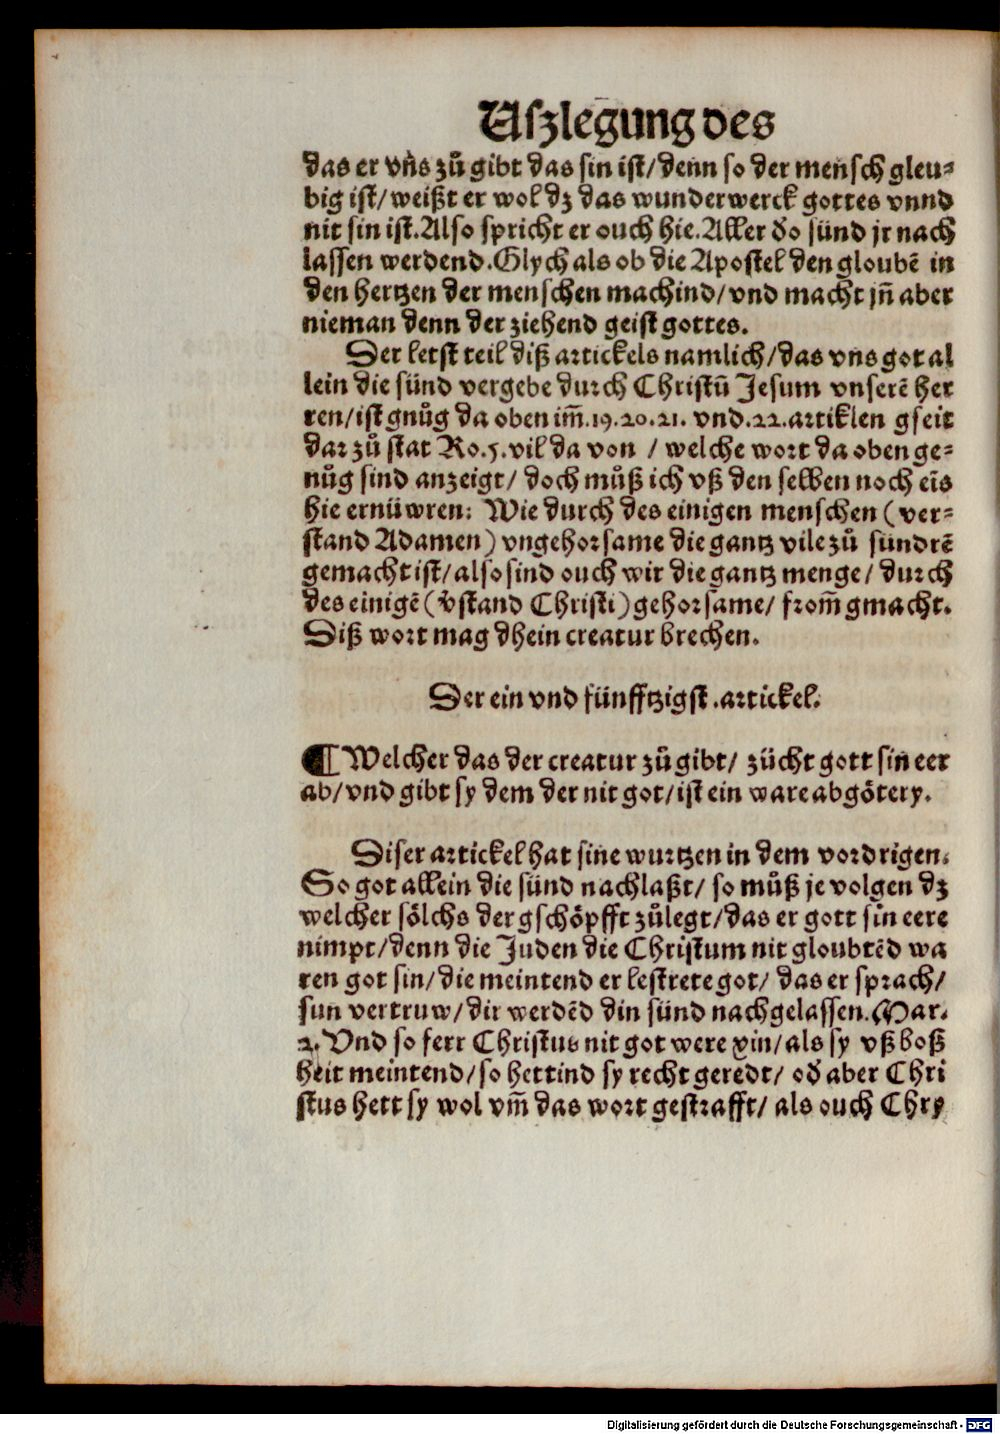 Uſzlegung des
das er vns zuͦ gibt das sin ist/denn so der mensch gleu⸗
big ist/weißt er wol dz das wunderwerck gottes vnnd
nit sin ist. Also spricht er ouch hie. Aller do sünd jr nach
lassen werdend. Glych als ob die Apostel den gloubē in
den hertzen der menschen machind/vnd macht jn̄ aber
nieman denn der ziehend geist gottes.
Der letst teil diß artickels namlich/das vns got al
lein die sünd vergebe durch Christū Jesum vnserē her
ren/ist gnuͦg da oben im̄.19.20.21. vnd.22.artiklen gseit
dar zuͦ stat Ro.5.vil da von / welche wort da oben ge⸗
nuͦg sind anzeigt/ doch muͦß ich vß den selben noch eīs
hie ernüwren: Wie durch des einigen menschen (ver⸗
stand Adamen) vngehorsame die gantz vile zuͦ sündrē
gemacht ist/also sind ouch wir die gantz menge/ durch
des einigē (v̄stand Christi) gehorsame/ from̄ gmacht.
Diß wort mag dhein creatur brechen.
Der ein vnd fünfftzigst .artickel.
¶ Welcher das der creatur zuͦ gibt/ zücht gott sin eer
ab/vnd gibt sy dem der nit got/ist ein ware abgötery.
Diser artickel hat sine wurtzen in dem vordrigen.
So got allein die sünd nachlaßt/ so muͦß je volgen dz
welcher sölchs der gschöpfft zuͦlegt/das er gott sin eere
nimpt/denn die Juden die Christum nit gloubtēd wa
ren got sin/die meintend er lestrete got/ das er sprach/
sun vertruw/dir werdēd din sünd nachgelassen. Mar.
2. Vnd so ferr Christus nit got were xin/als sy vß boß
heit meintend/so hettind sy recht geredt/ od̄ aber Chri
stus hett sy wol vm̄ das wort gestrafft/ als ouch Chry
Digitalisierung gefördert durch die Deutsche Forschungsgemeinschaft - DFG